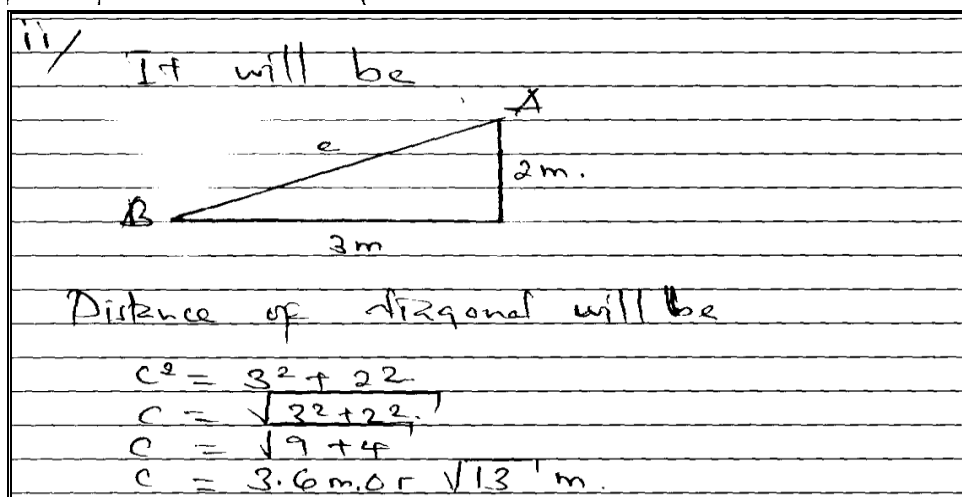 ii/
It will be
A
c
2m.
B
3m
Distance of diagonal will be
c² = 3² + 2².
c = √3²+2².
c = √9+4
c = 3.6m.or √13 m.